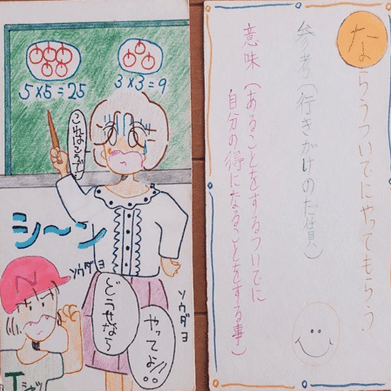 5×5=25
3×3=9
シ〜ン
ソウダヨ
どうせなら
やってよ!!
ソウダヨ
Tシャツ
ならうついでにやってもらう
参考(行きがけのだ賃)
意味(あることをするついでに
自分の得になることをする事)